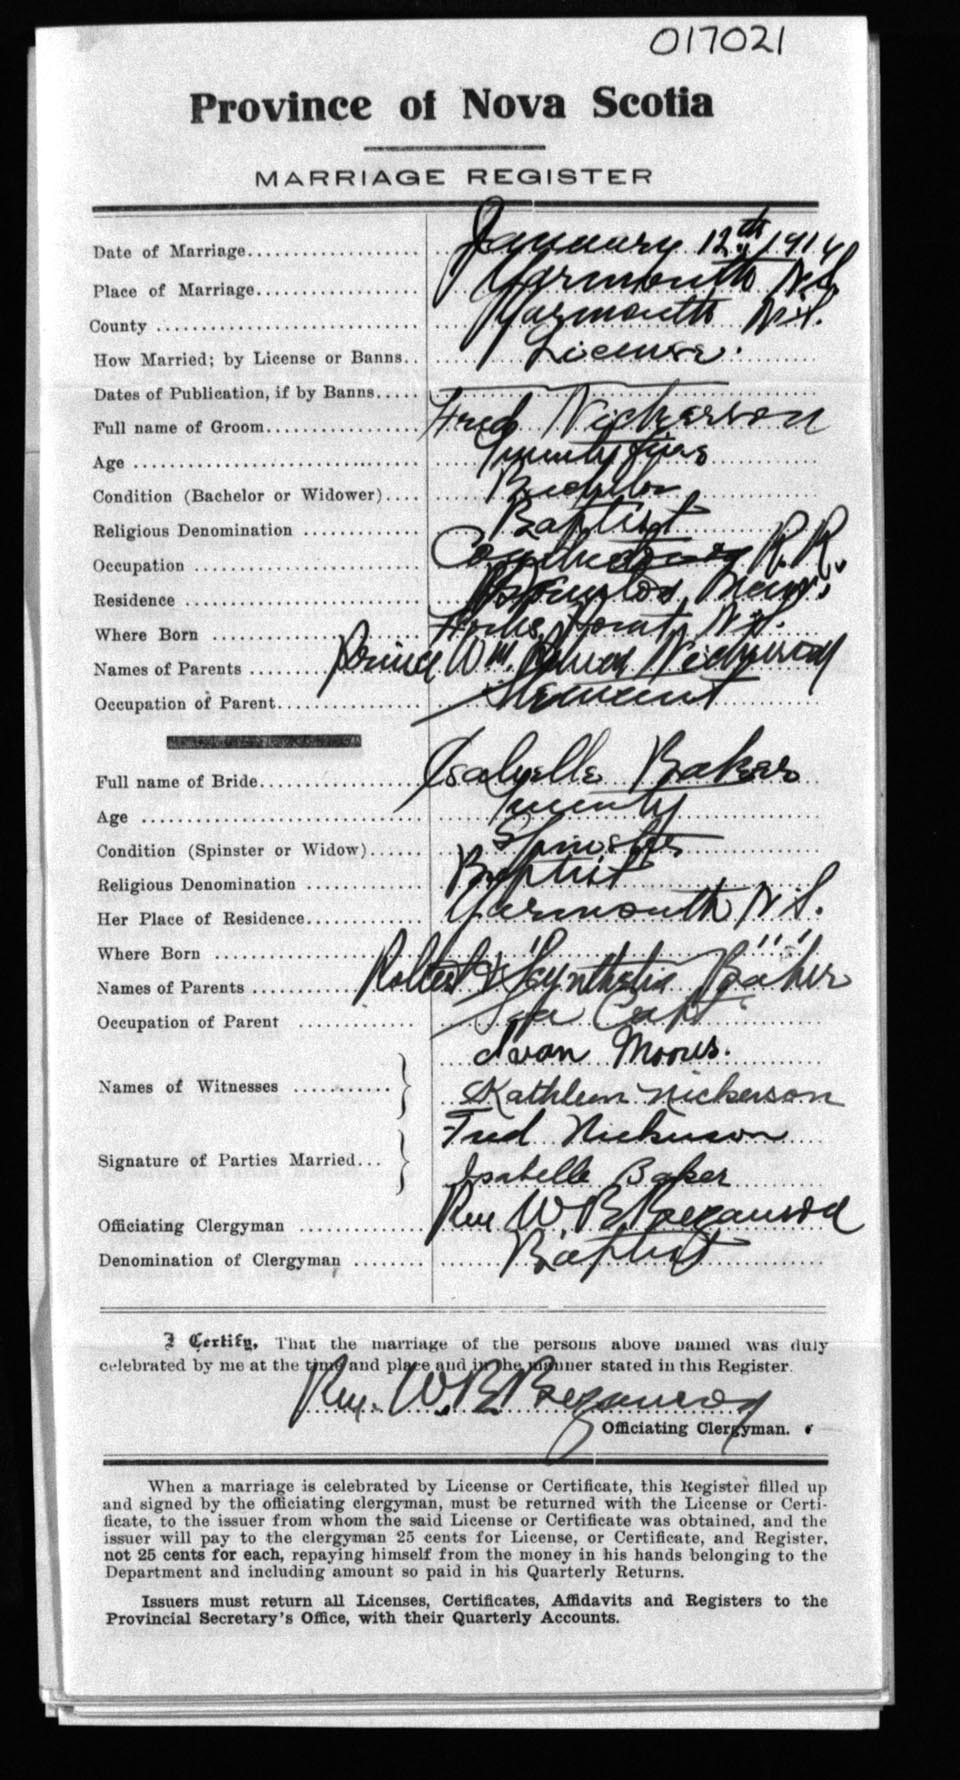 017021
Province of Nova Scotia
MARRIAGE REGISTER
Date of Marriage January 12th 1914
Place of Marriage Yarmouth N.S.
County Yarmouth N.S.
How Married; by License or Banns License.
Dates of Publication, if by Banns
Full name of Groom Fred Nickerson
Age Twenty five
Condition (Bachelor or Widower) Bachelor
Religious Denomination Baptist
Occupation R.R.
Residence Mass.
Where Born Point N.S.
Names of Parents Wm. Nickerson
Occupation of Parent
Full name of Bride Isabelle Baker
Age Twenty
Condition (Spinster or Widow) Spinster
Religious Denomination Baptist
Her Place of Residence Yarmouth N.S.
Where Born " " " "
Names of Parents Robert & Synthetia Baker
Occupation of Parent Sea Capt
Names of Witnesses Ivan Morris.
Kathleen Nickerson
Signature of Parties Married Fred Nickerson
Isabelle Baker
Officiating Clergyman Rev W. B. Bezanson
Denomination of Clergyman Baptist
I Certify, That the marriage of the persons above named was duly
celebrated by me at the time and place and in the manner stated in this Register.
Rev. W. B. Bezanson
Officiating Clergyman.
When a marriage is celebrated by License or Certificate, this Register filled up
and signed by the officiating clergyman, must be returned with the License or Certi-
ficate, to the issuer from whom the said License or Certificate was obtained, and the
issuer will pay to the clergyman 25 cents for License, or Certificate, and Register,
not 25 cents for each, repaying himself from the money in his hands belonging to the
Department and including amount so paid in his Quarterly Returns.
Issuers must return all Licenses, Certificates, Affidavits and Registers to the
Provincial Secretary's Office, with their Quarterly Accounts.